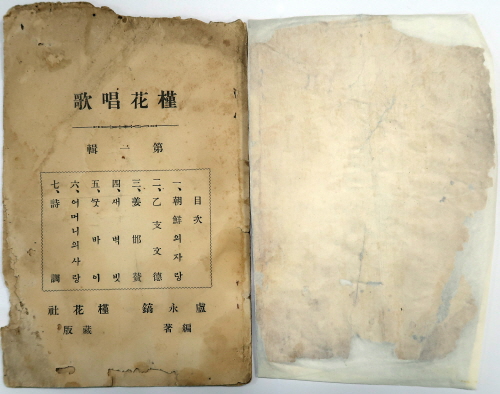 槿花唱歌
第一輯
目次
一、朝鮮의자랑
二、乙支文德
三、姜邯贊
四、새벽빗
五、굿바이
六、어머니의사랑
七、詩調
盧永鎬 編著
槿花社 藏版